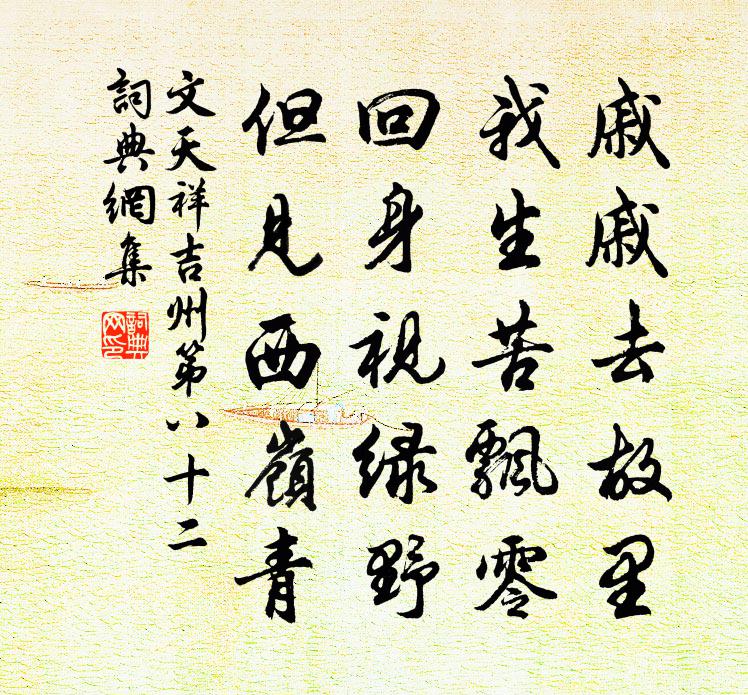 戚戚去故里
我生苦飄零
回身視緑野
但見西嶺青
文天祥吉州第八十二
詞典網集
詞典網印